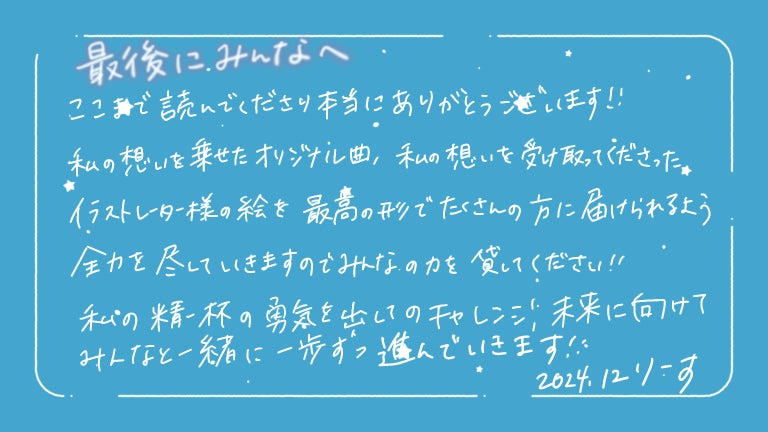 最後に、みんなへ
ここまで読んでくださり本当にありがとうございます!!
私の想いを乗せたオリジナル曲、私の想いを受け取ってくださった
イラストレーター様の絵を最高の形でたくさんの方に届けられるよう
全力を尽していきますのでみんなの力を貸してください!!
私の精一杯の勇気を出してのチャレンジ!未来に向けて
みんなと一緒に一歩ずつ進んでいきます!!
2024.12りーす